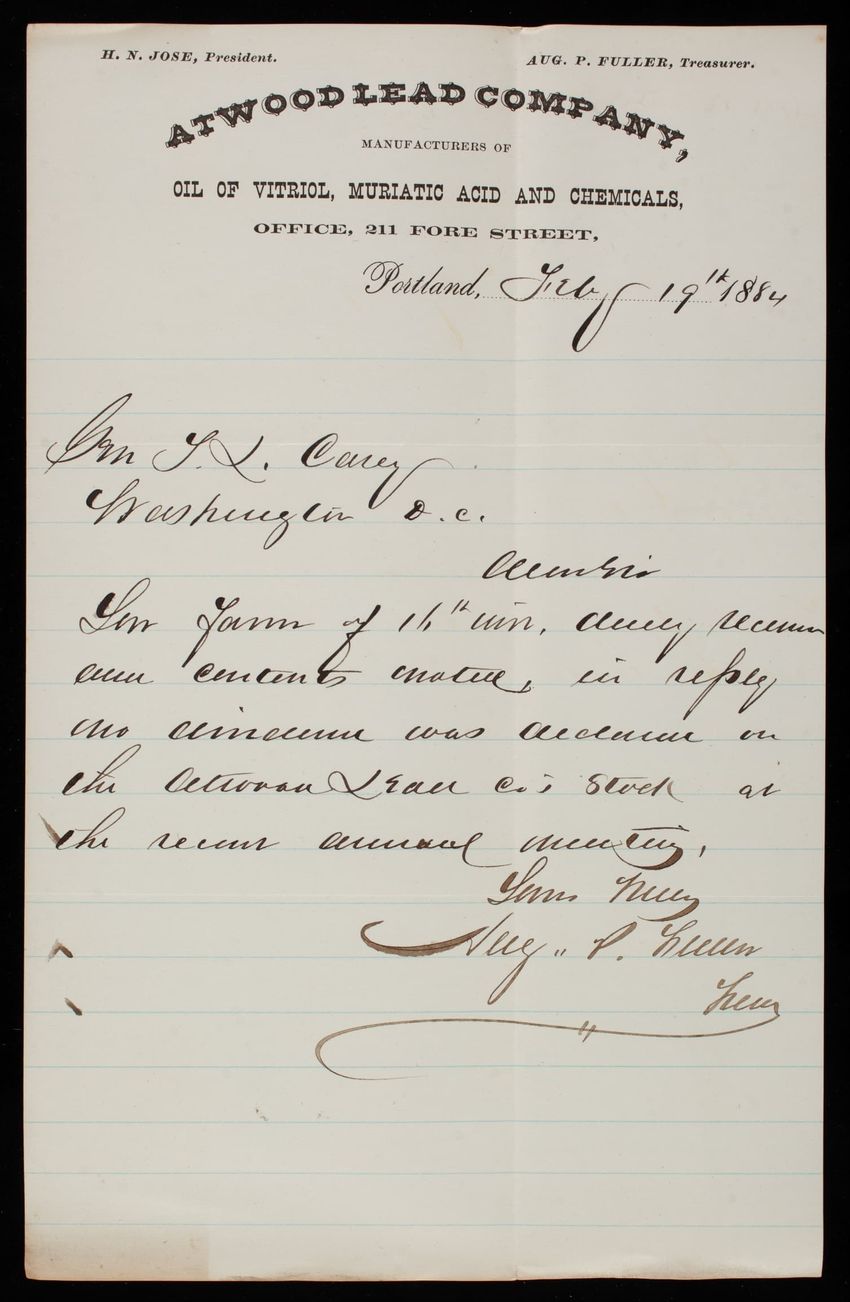 H. N. JOSE, President.
AUG. P. FULLER, Treasurer.
ATWOOD LEAD COMPANY,
MANUFACTURERS OF
OIL OF VITRIOL, MURIATIC ACID AND CHEMICALS,
OFFICE, 211 FORE STREET,
Portland, Feby 19th 1884
Gen T. L. Casey
Washington D.C.
Dear Sir
Your favor of 16th inst. duly received
and contents noted, in reply
no dividend was declared on
the Atwood Lead Co's Stock at
the recent annual meeting,
Yours Truly
Aug. P. Fuller
Treas